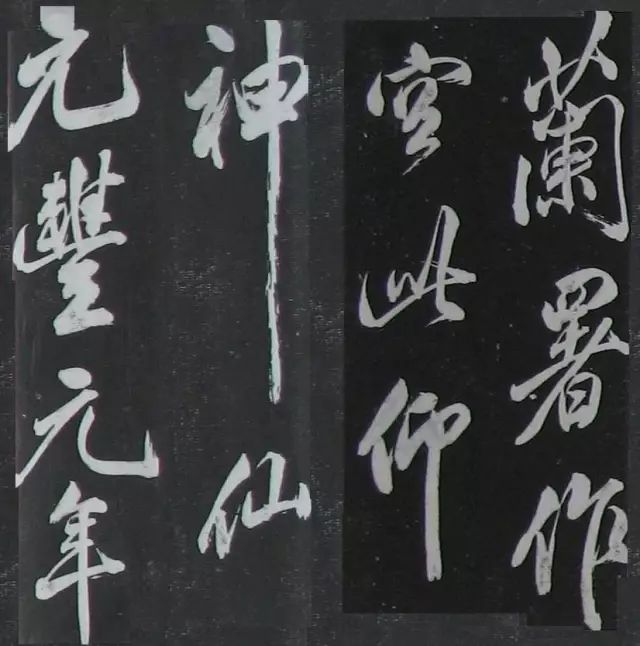 蘭署作
宮此仰
神仙
元豐元年